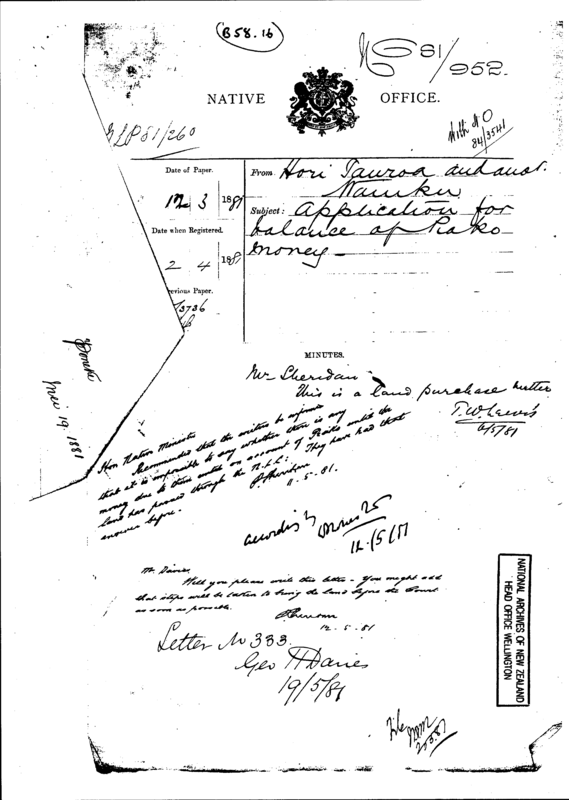 B 58.16
81/
952.
NATIVE OFFICE.
NLP 81/260
With NO
84/3541
Date of Paper.
12 3 1881
Date when Registered.
2 4 188
revious Paper.
3736
From Hori Tauroa and anor.
Subject: Application for
balance of Piako
money
MINUTES.
Mr Sheridan
This is a land purchase matter
T.W. Lewis
6/5/81
Hon Native Minister
Recommended that the writers be informed
that it is impossible to say whether there is any
money due to them on account of Piako until the
land has passed through the N.L.C. They have had that
answer before.
P Sheridan
11.5.81.
12/5/81
Mr Davies
Will you please write this letter - You might add
that steps will be taken to bring the land before the Court
as soon as possible.
P Sheridan
12.5.81
Letter No 333.
Geo H Davies
19/5/81
File
Mei 19, 1881
NATIONAL ARCHIVES OF NEW ZEALAND
HEAD OFFICE WELLINGTON